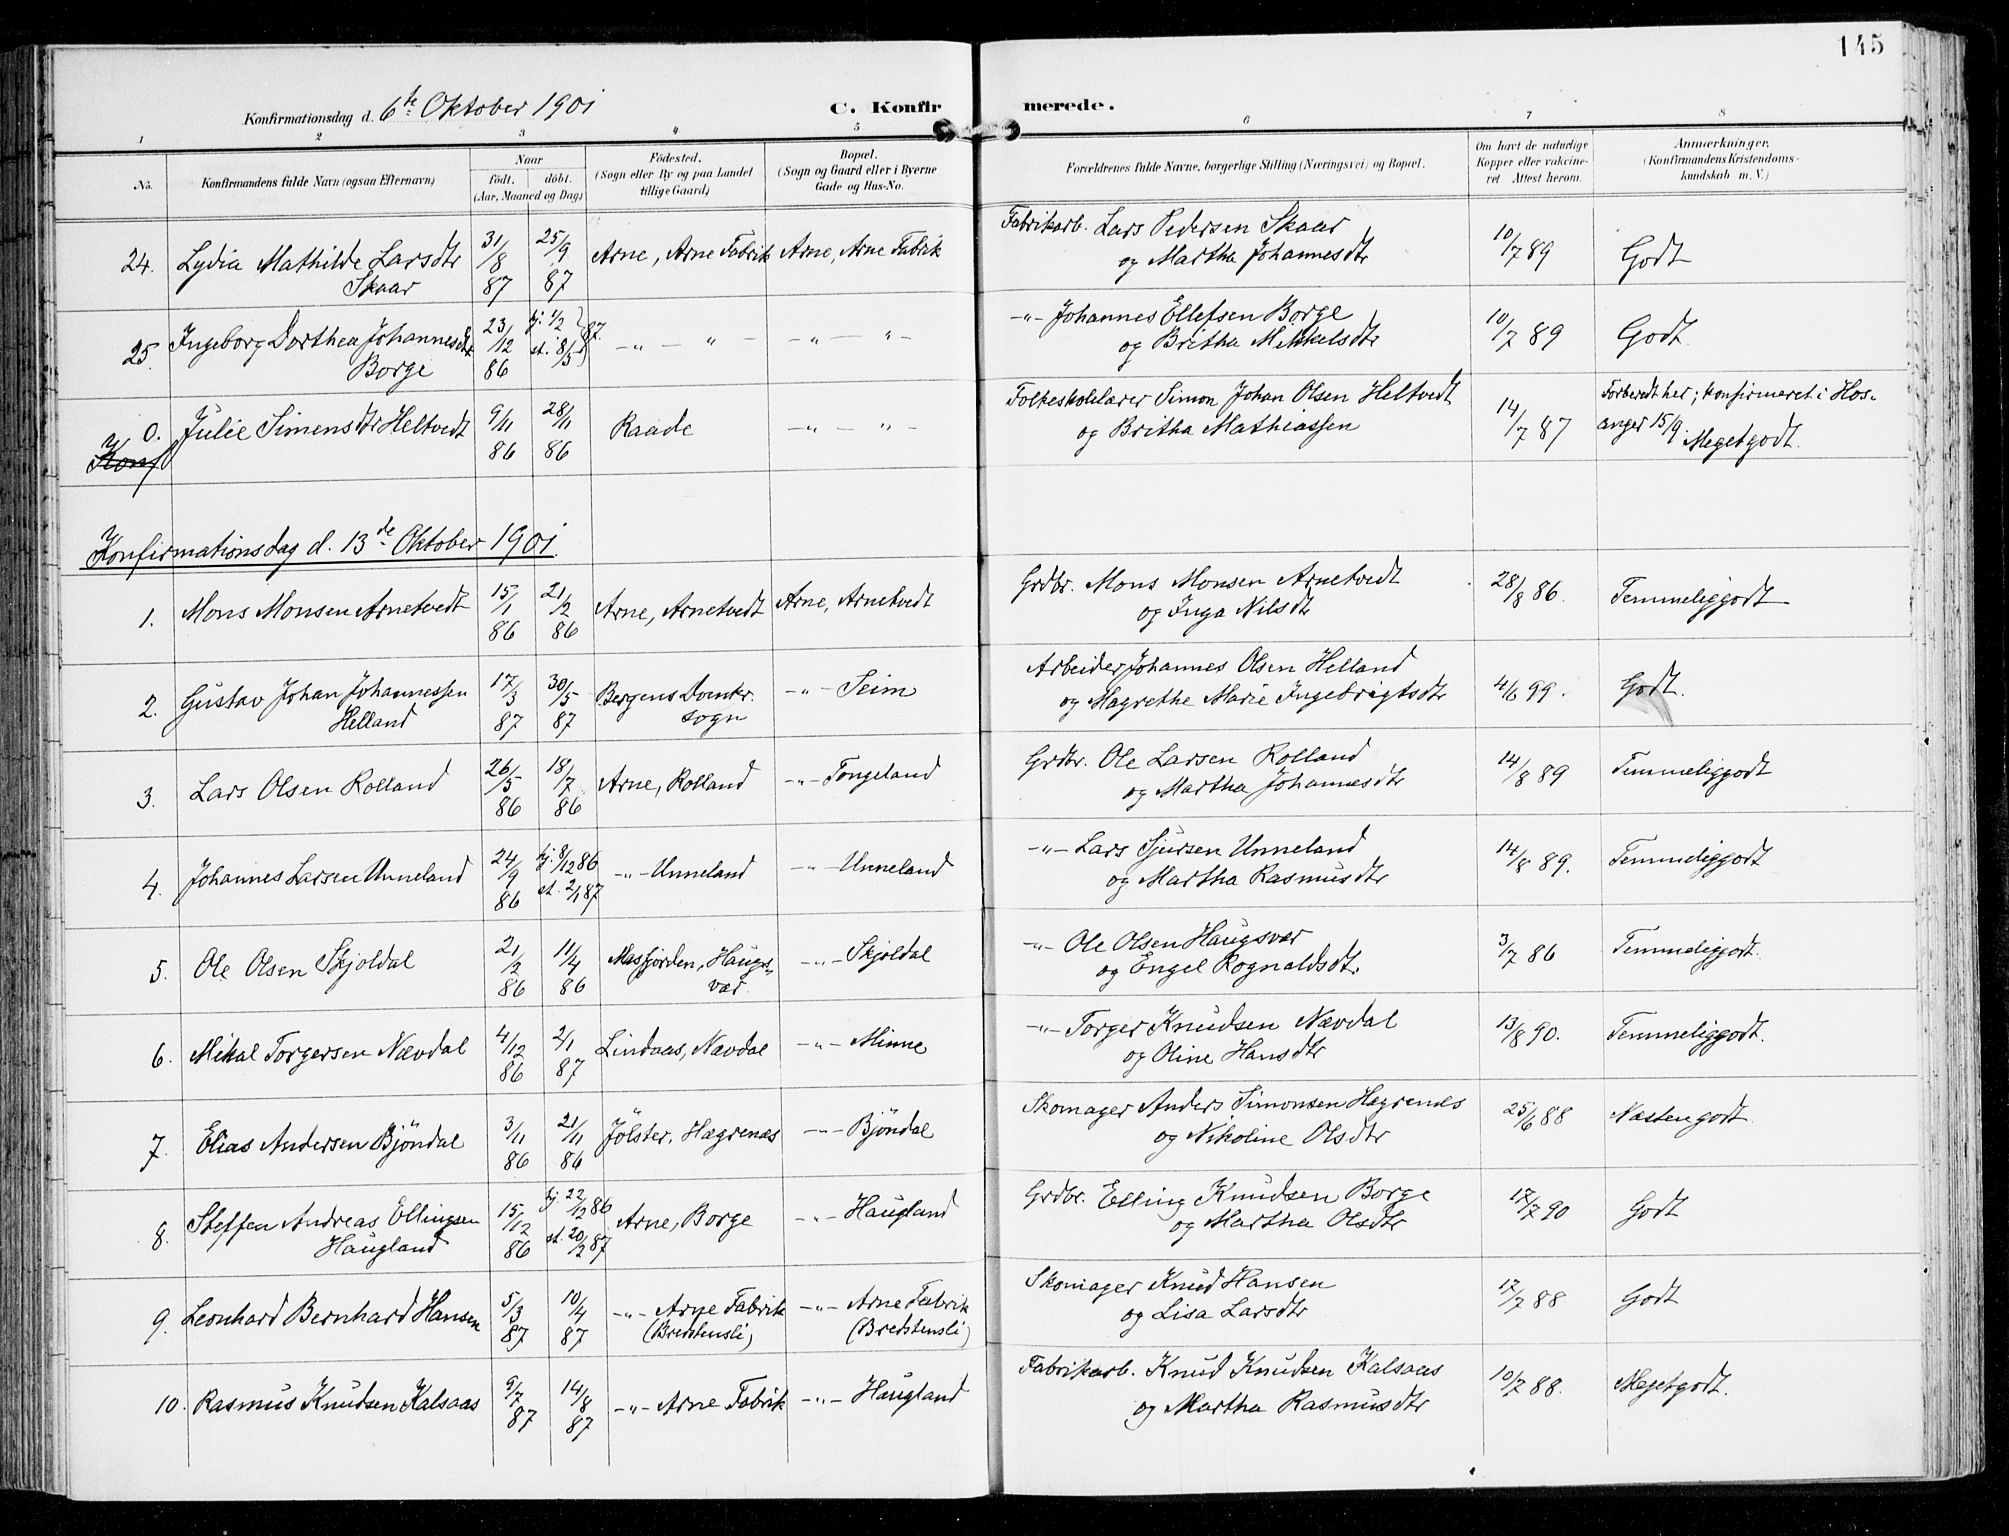 145
Konfirmationsdag d. 6te Oktober 1901
C. Konfirmerede.
1 2 3 4 5 6 7 8
No.
Konfirmandens fulde Navn (ogsaa Efternavn)
Naar
födt. döbt.
(Aar, Maaned og Dag)
Födested.
(Sogn eller By og paa Landet
tillige Gaard)
Bopæl.
(Sogn og Gaard eller i Byerne
Gade og Hus-No.
Forældrenes fulde Navne, borgerlige Stilling (Næringsvei) og Bopæl.
Om havt de naturlige
Kopper eller vakcine-
ret Attest herom.
Anmærkninger.
(Konfirmandens Kristendoms-
kundskab m. V.)
24. Lydia Mathilde Larsdtr Skaar 31/8 87 25/9 87 Arne, Arne Fabrik Arne, Arne Fabrik Fabrikarb. Lars Pedersen Skaar
og Martha Johannesdtr 10/7 89 Godt
25. Ingeborg Dorthea Johannesdtr Borge 23/12 86 hj. 1/2 st. 8/5 87. -"- " - -"- "- -"- Johannes Ellefsen Borge
og Britha Mikkelsdtr 10/7 89 Godt.
0. Julie Simensdtr Heltvedt 9/11 86 28/11 86 Raade -"- "- Folkeskolelærer Simon Johan Olsen Heltvedt
og Britha Mathiassen 14/7 87 Forberedt her; konfirmeret i Hos-
anger 15/9. Megetgodt.
Konf
Konfirmationsdag d. 13de Oktober 1901.
1. Mons Monsen Arnetvedt 15/1 86 21/2 86 Arne, Arnetvedt Arne, Arnetvedt Grdbr. Mons Monsen Arnetvedt
og Inga Nilsdtr 28/8 86. Temmeliggodt
2. Gustav Johan Johannessen Helland 17/3 87 30/5 87 Bergens Domkr. sogn -"- Seim Arbeider Johannes Olsen Helland
og Magrethe Marie Ingebrigtsdtr 4/6 99. Godt.
3. Lars Olsen Rolland 26/5 86 18/7 86 Arne, Rolland -"- Tongeland Grdbr. Ole Larsen Rolland
og Martha Johannesdtr 14/8 89 Temmeliggodt
4. Johannes Larsen Unneland 24/9 86 hj. 8/12 86 st. 2/1 87 -"- Unneland -"- Unneland -"- Lars Sjursen Unneland
og Martha Rasmusdtr 14/8 89. Temmeliggodt
5. Ole Olsen Skjoldal 21/2 86 11/4 86 Masfjorden, Haugsvær. -"- Skjoldal -"- Ole Olsen Haugsvær
og Engel Rognaldsdt. 3/7 86 Temmeliggodt.
6. Mikal Torgersen Nævdal 4/12 86 2/1 87 Lindaas, Nævdal -"- Minne -"- Torger Knudsen Nævdal
og Oline Hansdtr 13/8 90. Temmeliggodt.
7. Elias Andersen Bjöndal 3/11 86 21/11 86 Jölster, Hægrenæs -"- Bjöndal Skomager Anders Simonsen Hægrenæs
og Nikoline Olsdtr 25/6 88 Næsten godt.
8. Steffen Andreas Ellingsen Haugland 15/12 86 hj. 22/12 86 st. 20/2 87 Arne, Borge -"- Haugland Grdbr. Elling Knudsen Borge
og Martha Olsdtr 17/7 90 Godt
9. Leonhard Bernhard Hansen 5/3 87 10/4 87 -"- Arne Fabrik (Bredstensli) -"- Arne Fabrik (Bredstensli) Skomager Knud Hansen
og Lisa Larsdtr 17/7 88 Godt
10. Rasmus Knudsen Kalsaas 9/7 87 14/8 87 -"- Arne Fabrik -"- Haugland Fabrikarb. Knud Knudsen Kalsaas
og Martha Rasmusdtr 10/7 88. Megetgodt.